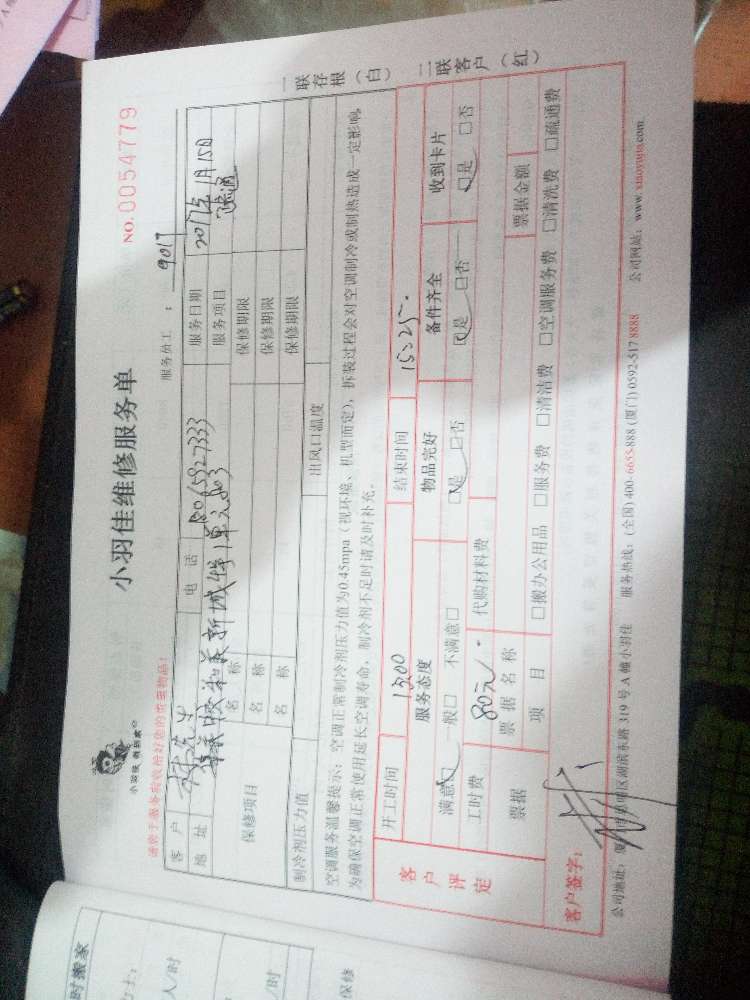 小羽佳维修服务单
NO. 0054779
小羽佳 有到家
服务员工： 9017
客户 电话 18065927333 服务日期 2017年1月15日
地址 服务项目 疏通
保修项目 名称 保修期限
名称 保修期限
名称 保修期限
制冷剂压力值 出风口温度
空调服务温馨提示：空调正常制冷剂压力值为0.45mpa（视环境、机型而定），拆装过程会对空调制冷或制热造成一定影响,
为确保空调正常使用延长空调寿命，制冷剂不足时请及时补充。
客户评定
开工时间 1500 结束时间 1525.
服务态度 物品完好 备件齐全 收到卡片
满意□ 一般□ 不满意□ □是 □否 □是 □否 □是 □否
工时费 80元. 代购材料费
票据 票据名称 票据金额
项目 □搬办公用品 □服务费 □清洁费 □空调服务费 □清洗费 □疏通费
客户签字：
公司地址：厦门市思明区湖滨东路319号A幢小羽佳 服务热线：(全国) 400-6655-888 (厦门) 0592-517 8888 公司网站：www.xiaoyujia.com
一联存根（白） 二联客户（红）
时搬家
人/时
/时
保修